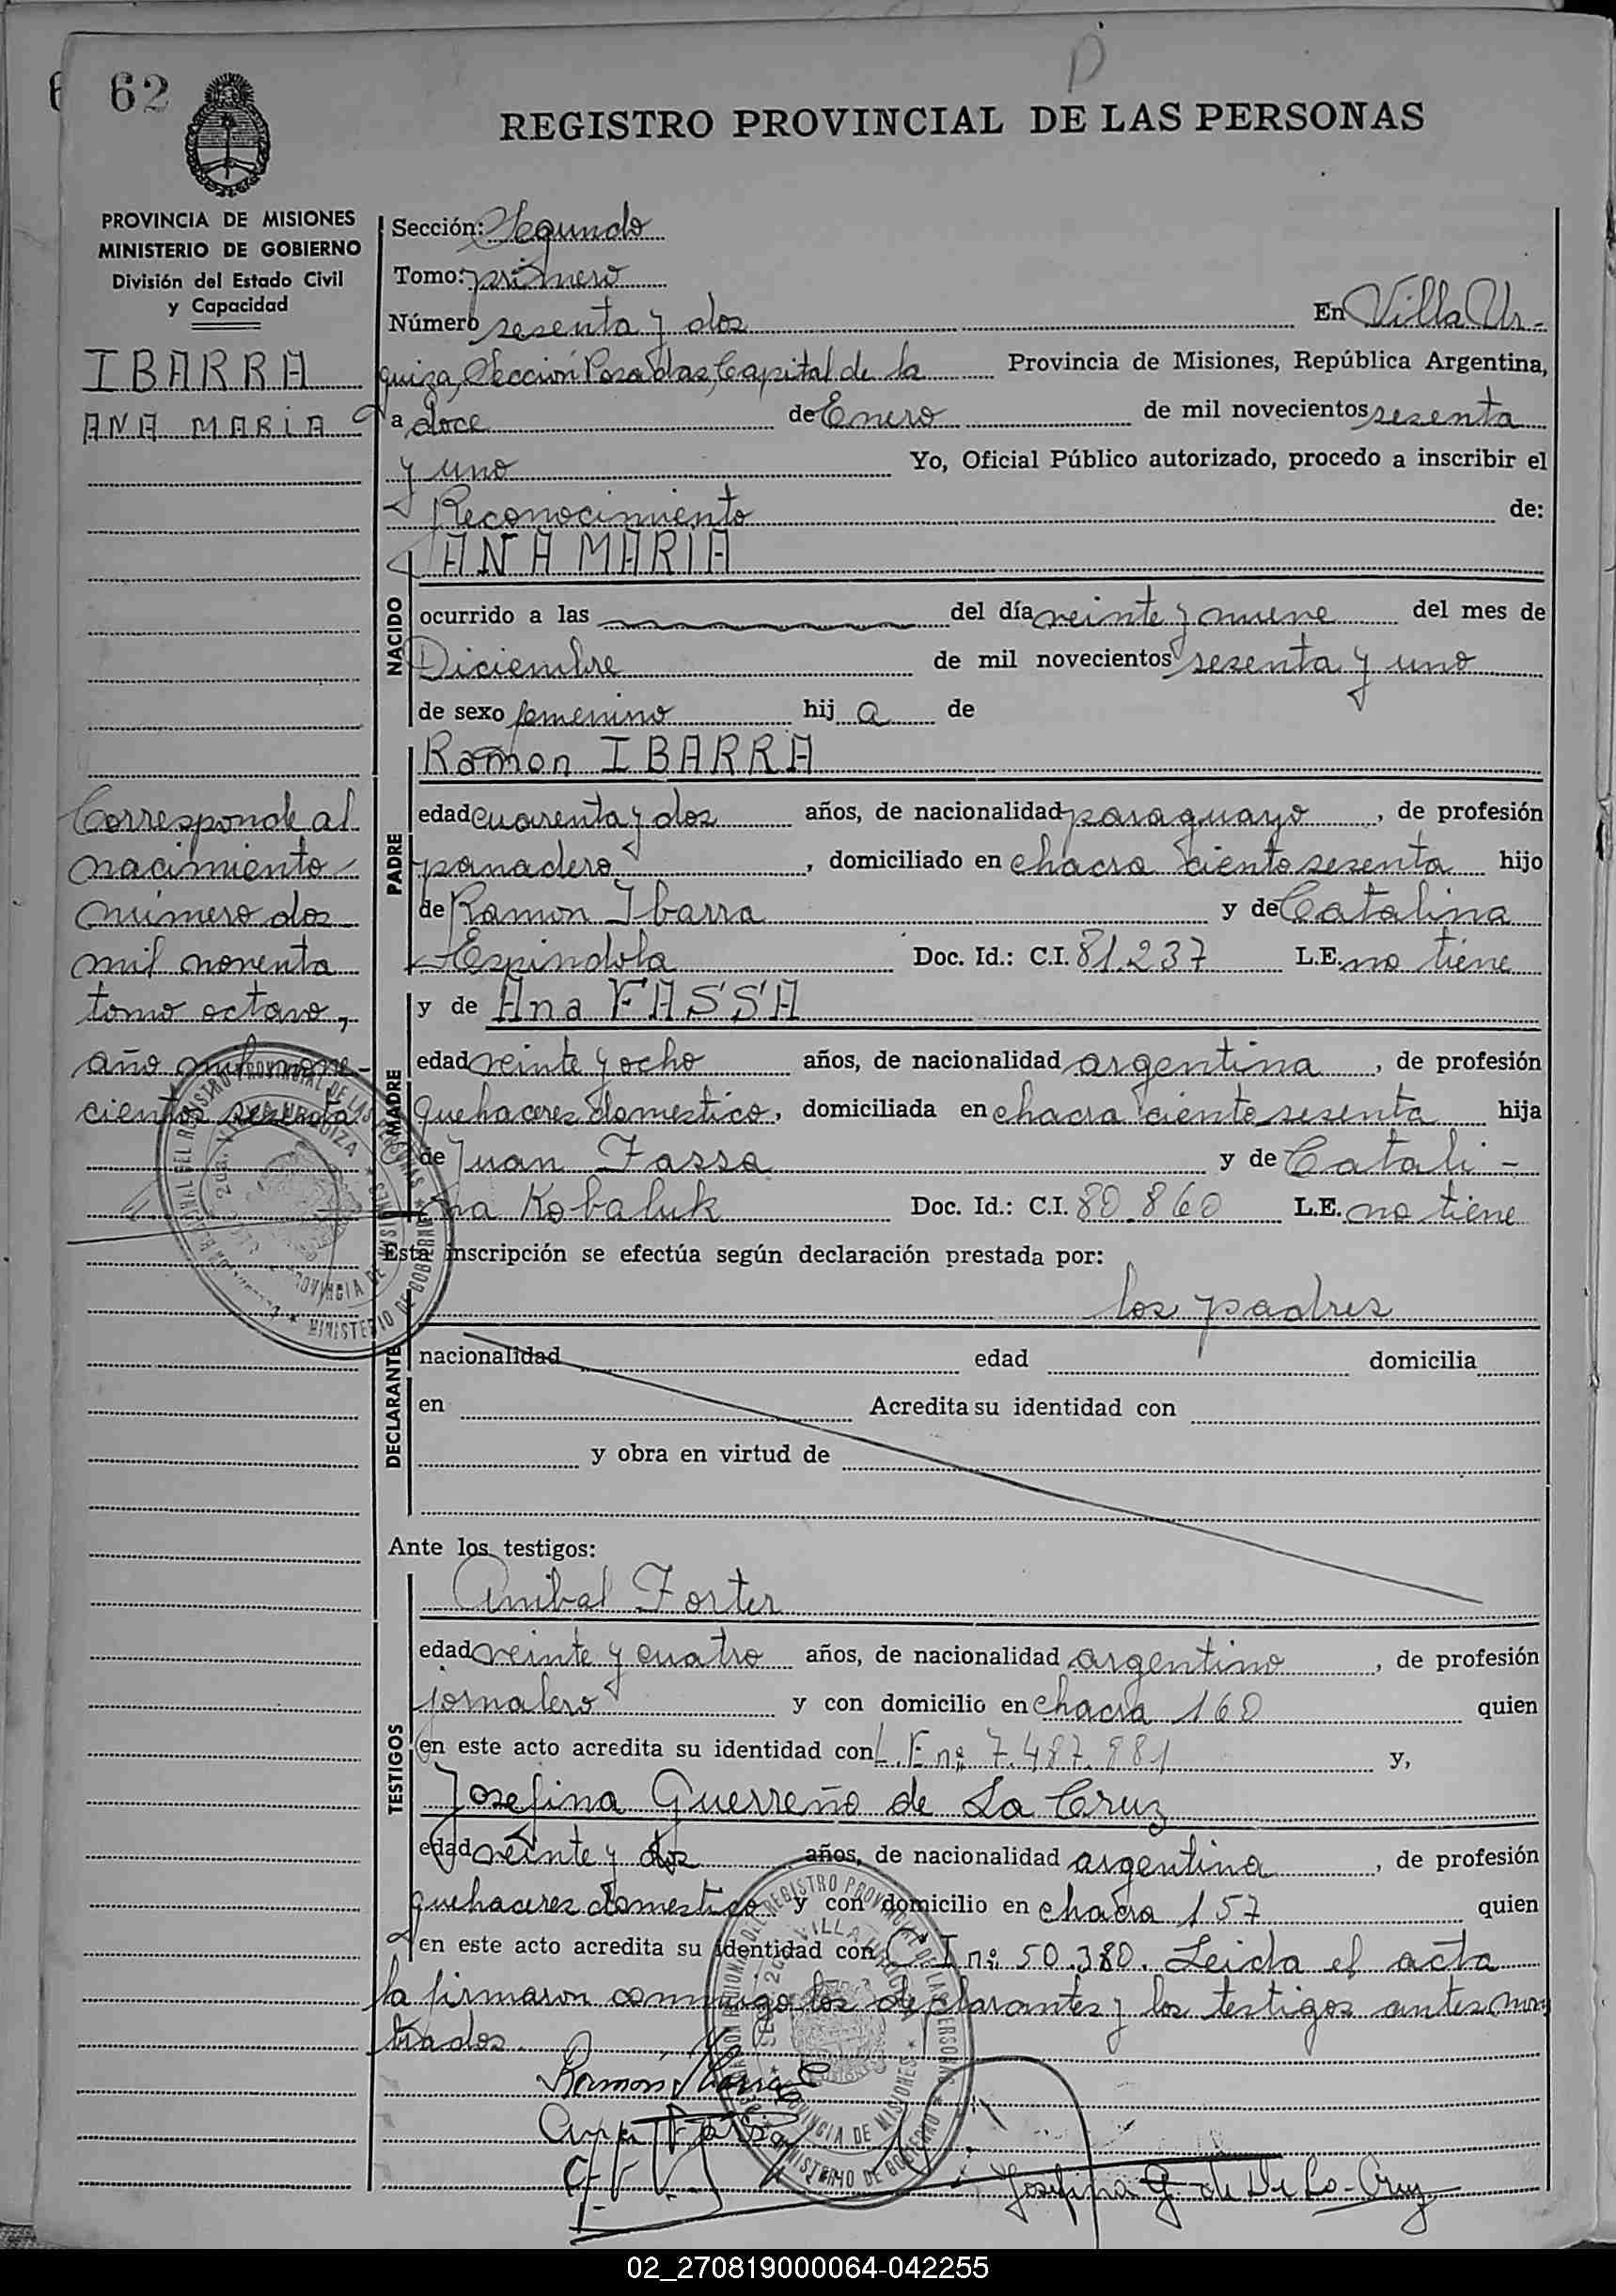 62
REGISTRO PROVINCIAL DE LAS PERSONAS
PROVINCIA DE MISIONES
MINISTERIO DE GOBIERNO
División del Estado Civil
y Capacidad
IBARRA
ANA MARIA
Corresponde al
nacimiento
número dos
mil noventa
tomo octavo,
año mil nove-
cientos sesenta
Sección: Segundo
Tomo: primero
Número sesenta y dos En Villa Ur-
quiza, Sección Posadas, Capital de la Provincia de Misiones, República Argentina,
a doce de Enero de mil novecientos sesenta
y uno Yo, Oficial Público autorizado, procedo a inscribir el
Reconocimiento de:
ANA MARIA
NACIDO
ocurrido a las del día veinte y nueve del mes de
Diciembre de mil novecientos sesenta y uno
de sexo femenino hij a de
Ramon IBARRA
PADRE
edad cuarenta y dos años, de nacionalidad paraguayo, de profesión
panadero, domiciliado en chacra ciento sesenta hijo
de Ramon Ibarra y de Catalina
Espindola Doc. Id.: C.I. 81.237 L.E. no tiene
MADRE
y de Ana FASSA
edad veinte y ocho años, de nacionalidad argentina, de profesión
quehaceres domestico, domiciliada en chacra ciento sesenta hija
de Juan Fassa y de Catali-
na Kobaluk Doc. Id.: C.I. 80.860 L.E. no tiene
Esta inscripción se efectúa según declaración prestada por:
los padres
DECLARANTE
nacionalidad edad domicilia
en Acredita su identidad con
y obra en virtud de
Ante los testigos:
TESTIGOS
Anibal Forter
edad veinte y cuatro años, de nacionalidad argentino, de profesión
jornalero y con domicilio en chacra 160 quien
en este acto acredita su identidad con L.E nº 7.487.881 y,
Josefina Guerreño de La Cruz
edad veinte y dos años, de nacionalidad argentina, de profesión
quehaceres domestico y con domicilio en chacra 157 quien
en este acto acredita su identidad con C I nº 50.380. Leida el acta
la firmaron conmigo los declarantes y los testigos antes nom
brados.
Ramón Ibarra
Ana Fassa
Josefina G. de De La Cruz
02_270819000064-042255